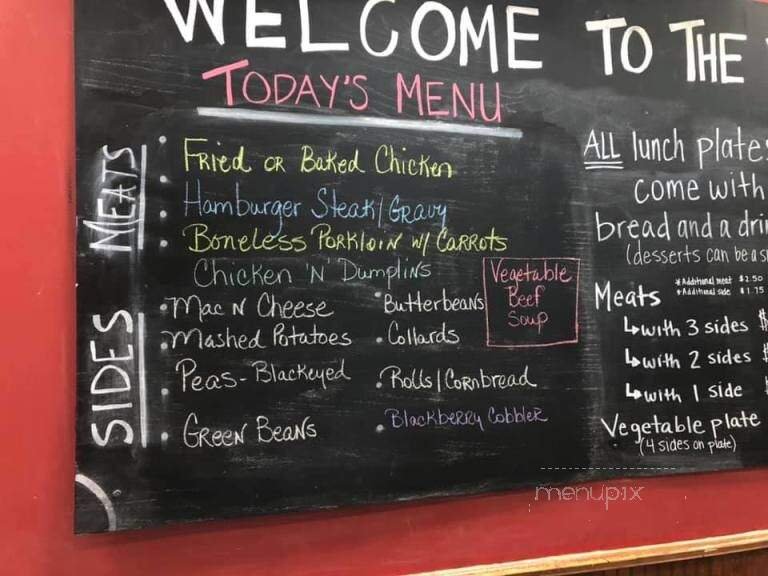 WELCOME TO THE
TODAY'S MENU
MEATS
Fried or Baked Chicken
Hamburger Steak/Gravy
Boneless Porkloin w/ Carrots
Chicken 'N' Dumplins
SIDES
Mac N Cheese
Mashed Potatoes
Peas-Blackeyed
Green Beans
Butterbeans
Collards
Rolls/Cornbread
Blackberry Cobbler
Vegetable
Beef
Soup
ALL lunch plates
come with
bread and a
(desserts can be a
Meats
*Additional meat $2.50
*Additional side $1.75
↳with 3 sides $
↳with 2 sides $
↳with 1 side
Vegetable plate
(4 sides on plate)
menupix